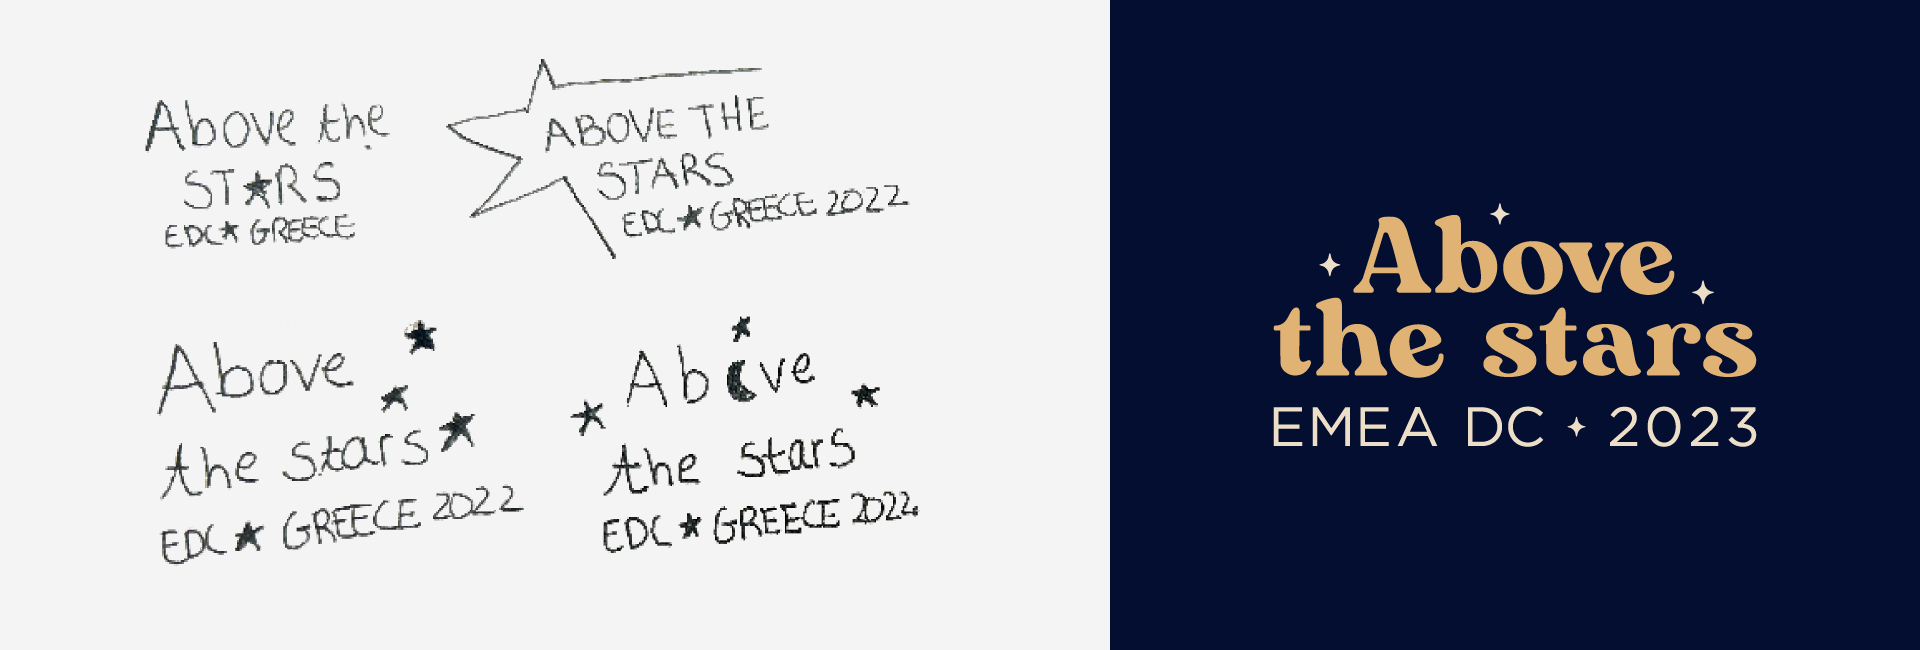 Above the
ST★RS
EDC★GREECE
ABOVE THE
STARS
EDC★GREECE 2022
Above
the stars
EDC★GREECE 2022
Above
the stars
EDC★GREECE 2022
Above
the stars
EMEA DC ✦ 2023